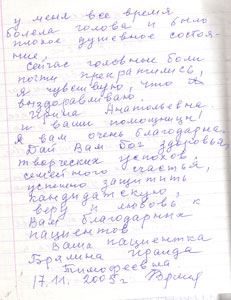 у меня все время
болела голова и было
плохое душевное состоя-
ние,
Сейчас головные боли
почти прекратились,
я чувствую, что
выздоравливаю.
Ирина Анатольевна
и ваши помощники!
Я вам очень благодарна,
Дай Вам бог здоровья,
творческих успехов,
семейного счастья,
успешно защитить
кандидатскую,
веру и любовь к
Вам благодарных
пациентов
Ваша пациентка
Ираида
Тимофеевна
17.11. 2005г